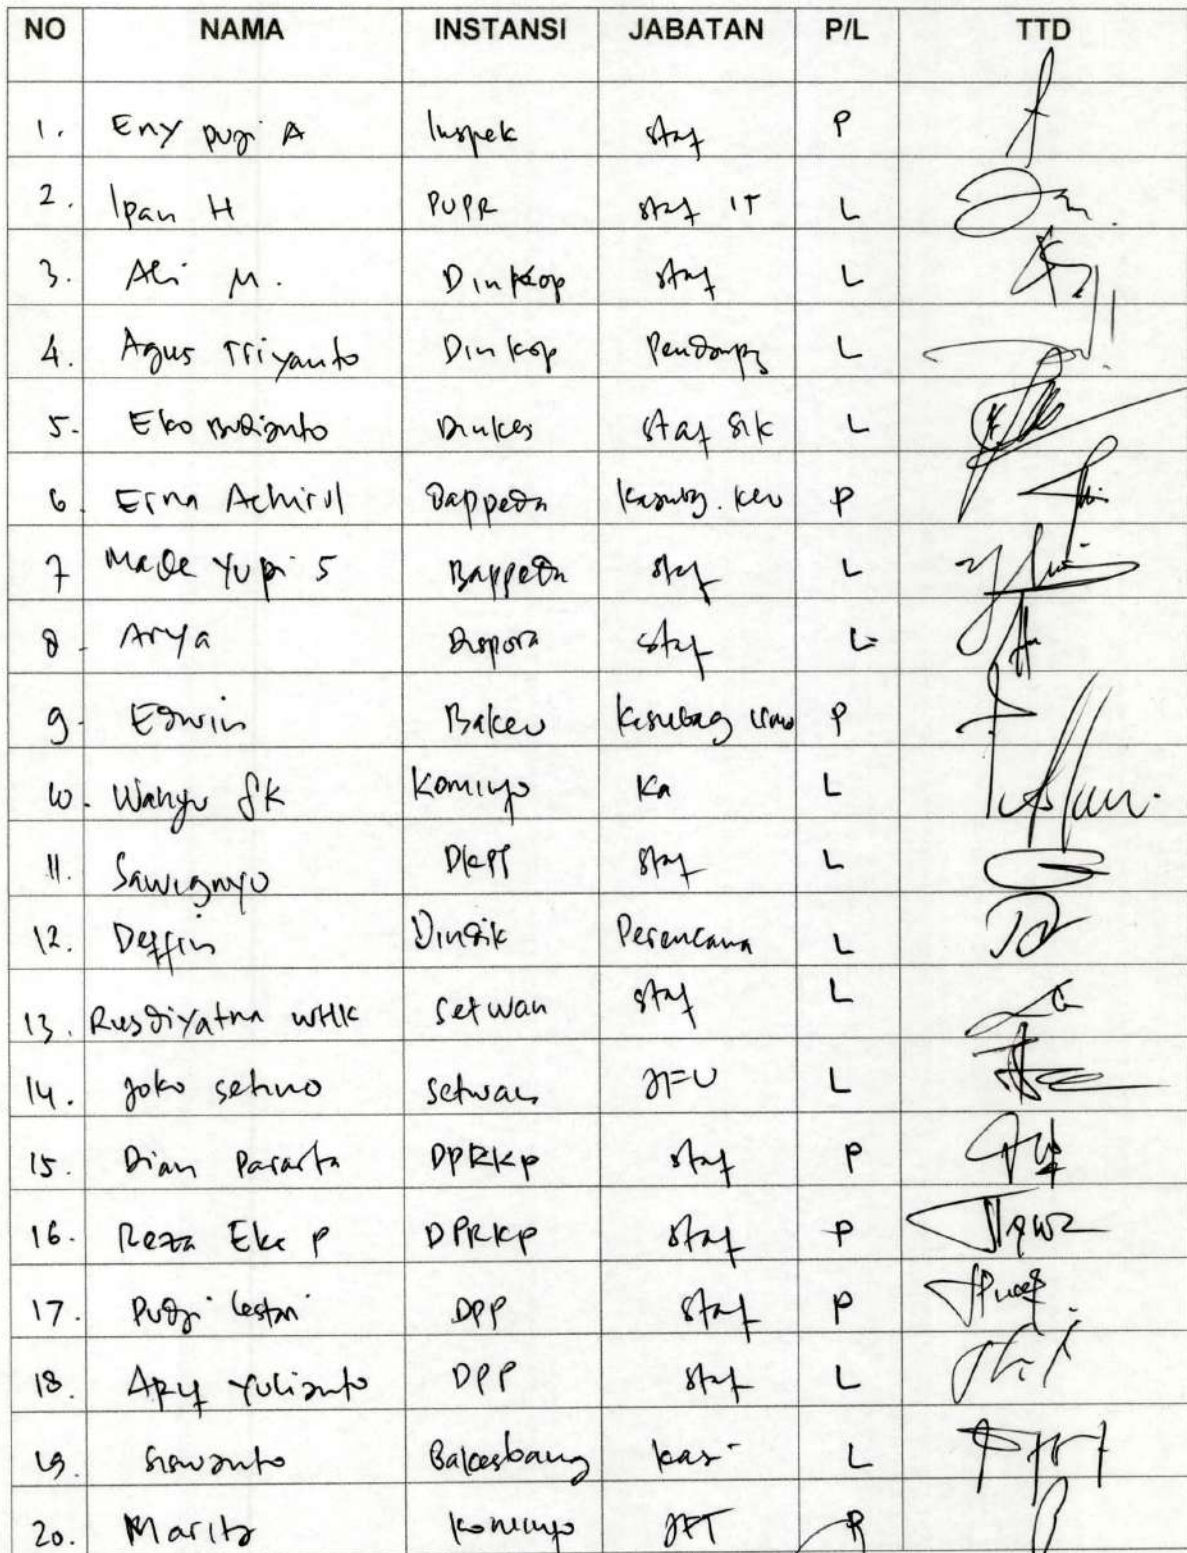 NO NAMA INSTANSI JABATAN P/L TTD
1. Eny Puji A Inspek staf P
2. Ipan H PUPR staf IT L
3. Ali M. Dinkop staf L
4. Agus Triyanto Dinkop Pendamp L
5. Eko Budianto Dinkes staf SIK L
6. Erna Achirul Bappeda Kasubg. Keu P
7 Made Yupi S Bappeda staf L
8 Arya Dispora staf L
9 Edwin Bakeu Kasubag Umu P
10. Wahyu SK Kominfo Ka L
11. Sawignyo DKPP staf L
12. Deffin Dindik Perencana L
13. Rusdiyatna WHK Setwan staf L
14. Joko Setiyo Setwan JFU L
15. Dian Pararta DPRKP staf P
16. Reza Eka P DPRKP staf P
17. Pudji Lestari DPP staf P
18. Apy Yulianto DPP staf L
19. Siswanto Bakesbang Kasi L
20. Marita Kominfo JFT P